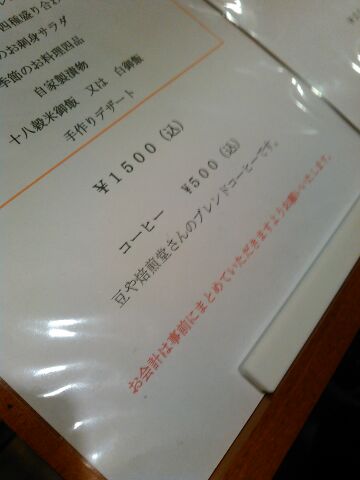 四種盛り合わ
のお刺身サラダ
季節のお料理四品
自家製漬物
十八穀米御飯　又は　白御飯
手作りデザート
￥１５００（込）
コーヒー　￥５００（込）
豆や焙煎堂さんのブレンドコーヒーです。
お会計は事前にまとめていただきますようお願いいたします。